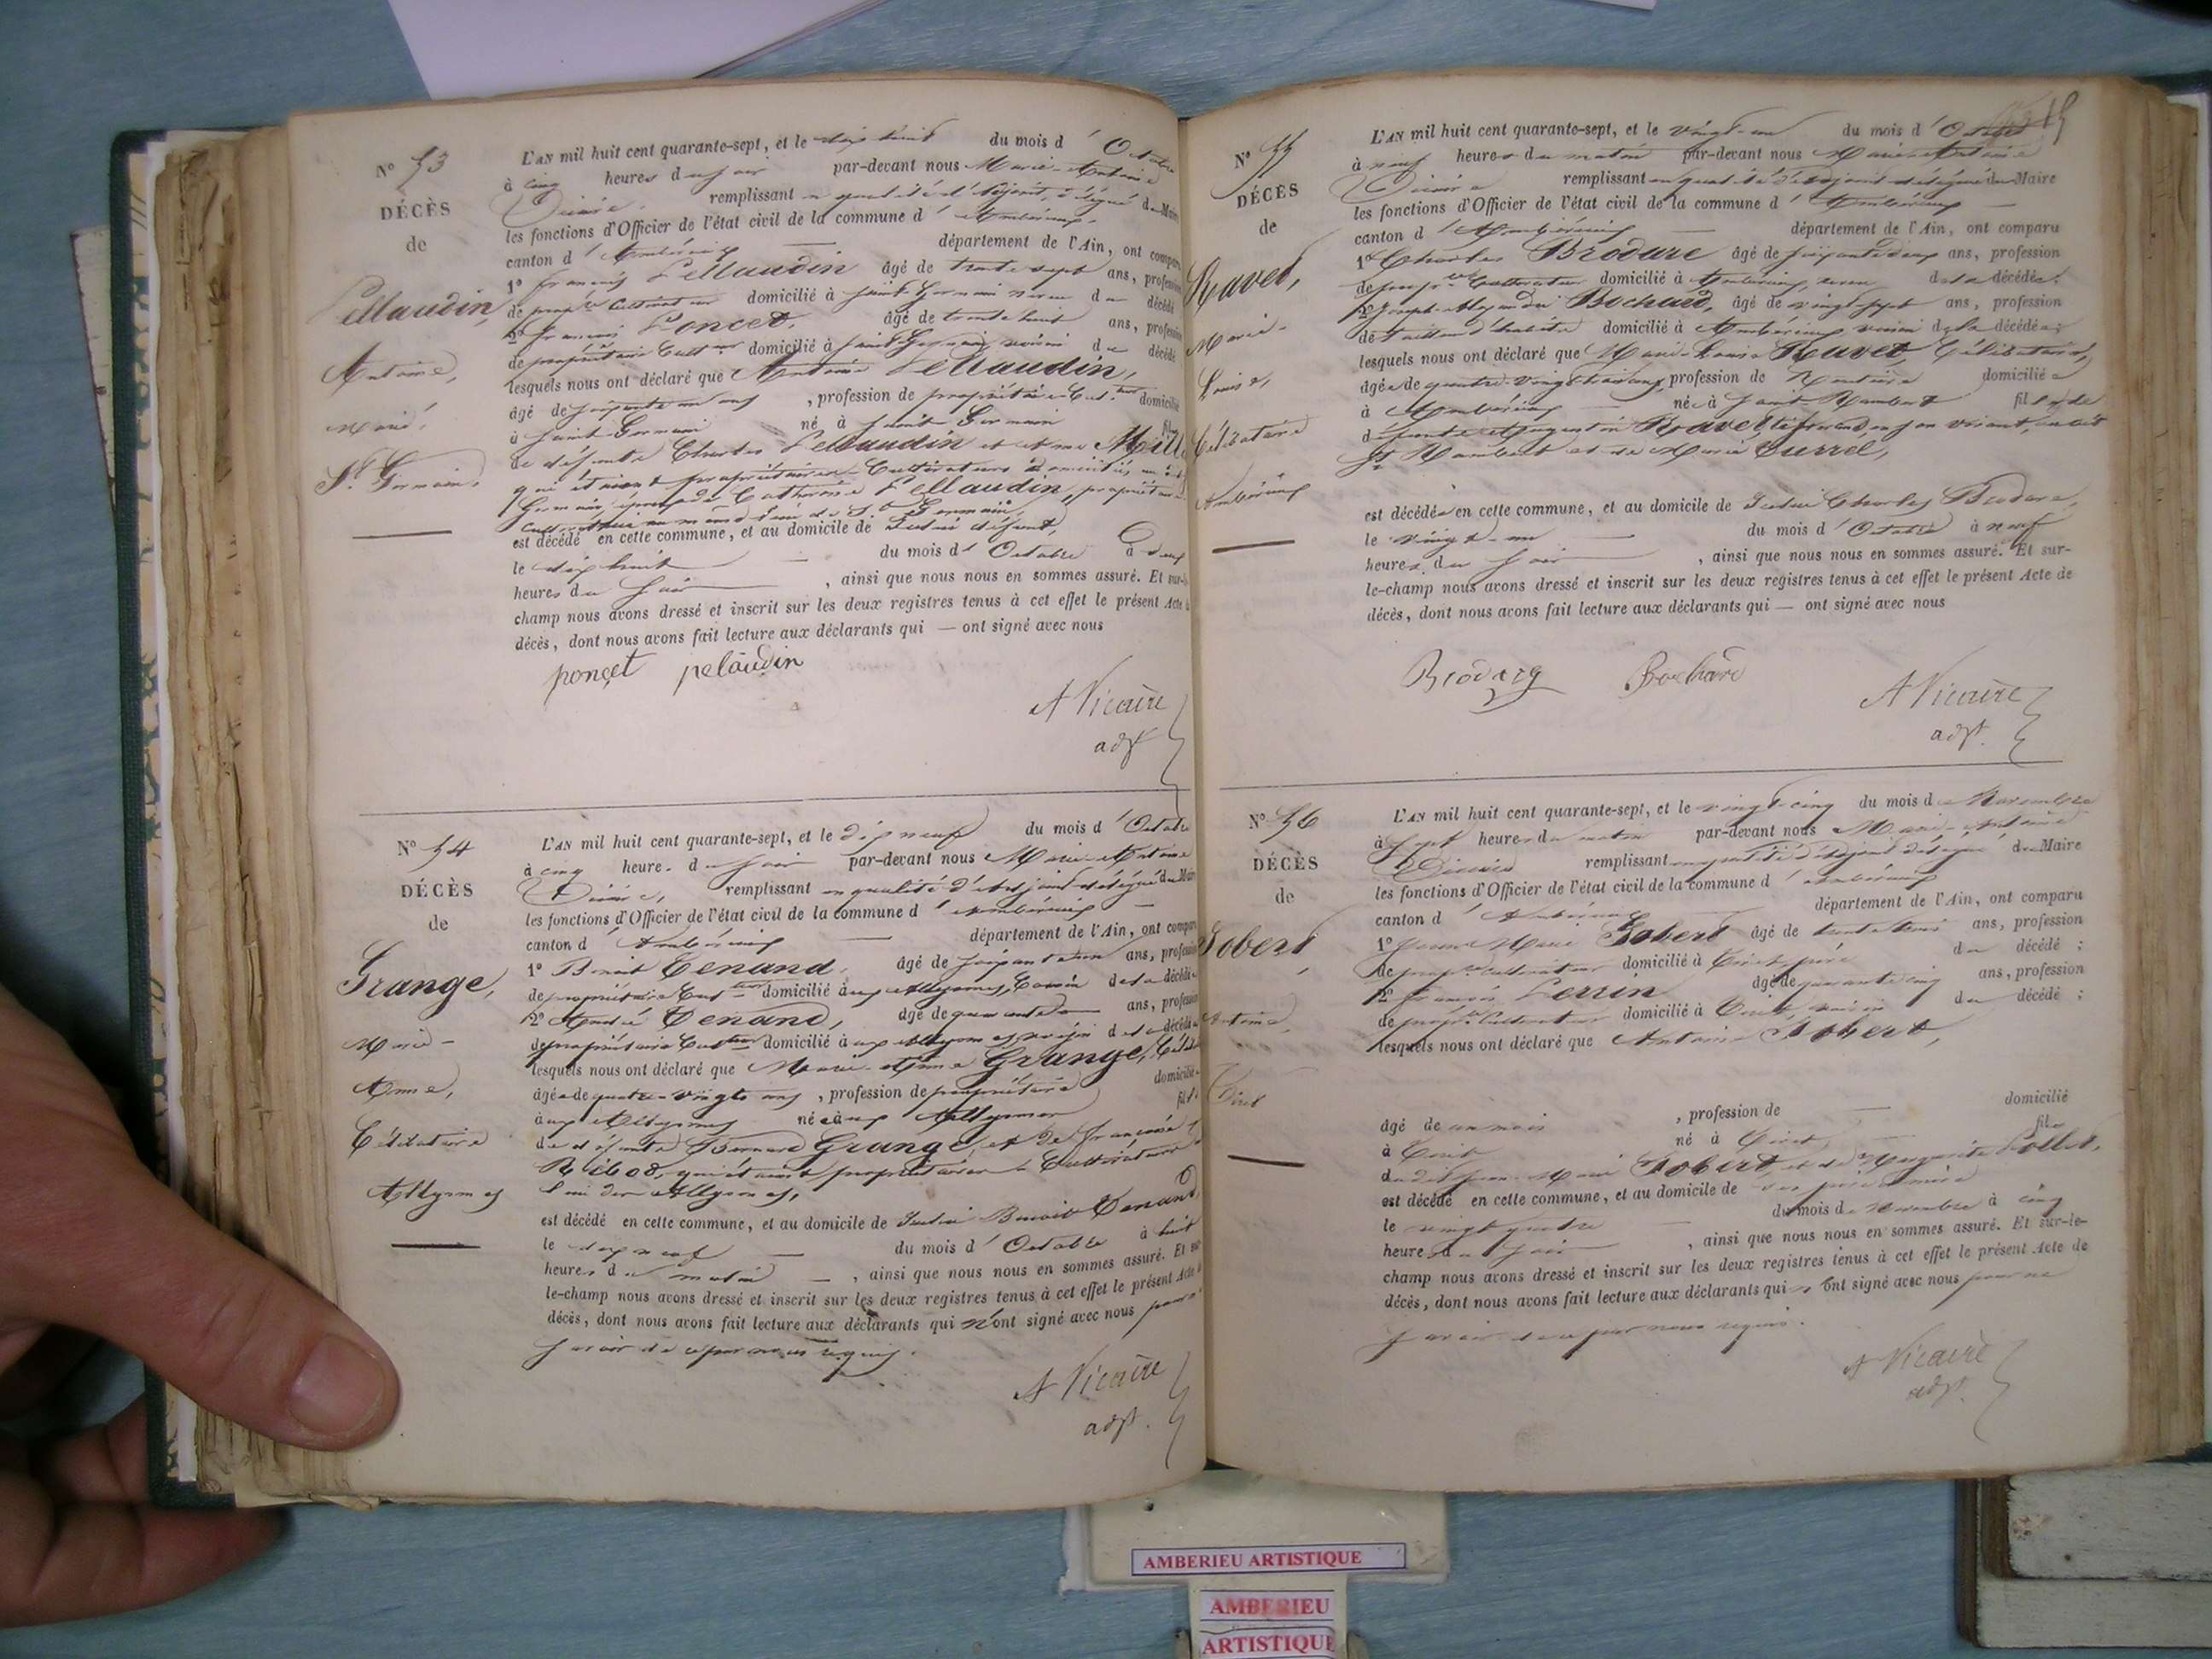 N° 53
DÉCÈS
de
Pellaudin,
Antoine,
marié,
St. Germain.
L'AN mil huit cent quarante-sept, et le dix huit du mois d'Octobre
à cinq heures du soir par-devant nous Marie-Antoine
remplissant en qualité d'Adjoint, délégué du Maire
les fonctions d'Officier de l'état civil de la commune d'Ambérieux,
canton d'Ambérieux département de l'Ain, ont comparu
1° François Pellaudin âgé de trente sept ans, profession
de propre Cultivateur domicilié à Saint-Germain neveu du décédé
2° François Poncet, âgé de trente huit ans, profession
de propriétaire Cultur domicilié à Saint Germain voisin du décédé
lesquels nous ont déclaré que Antoine Pellaudin,
âgé de soixante un ans, profession de propriétaire Cultur domicilié
à Saint Germain né à Saint Germain fils
de défunts Charles Pellaudin et Anne Mill
qui étaient propriétaires Cultivateurs domiciliés au dit
Germain, époux de Catherine Pellaudin, propriétaire
est décédé en cette commune, et au domicile de ludit défunt,
le dix huit du mois d'Octobre à deux
heures du soir, ainsi que nous nous en sommes assuré. Et sur-le
champ nous avons dressé et inscrit sur les deux registres tenus à cet effet le présent Acte de
décès, dont nous avons fait lecture aux déclarants qui — ont signé avec nous
ponçet pelaudin
A Vicaire
adjt
N° 54
DÉCÈS
de
Grange,
Marie-
Anne,
Célibataire
Allymes
L'AN mil huit cent quarante-sept, et le dix neuf du mois d'Octobre
à cinq heures du soir par-devant nous Marie-Antoine
remplissant en qualité d'adjoint délégué du Maire
les fonctions d'Officier de l'état civil de la commune d'Ambérieux
canton d'Ambérieux département de l'Ain, ont comparu
1° Benoit Tenand, âgé de soixante un ans, profession
de propriétaire Cultur domicilié aux Allymes, Cousin de la décédée
2° André Tenand, âgé de quarante ans, profession
de propriétaire Cultur domicilié aux Allymes voisin de la décédée
lesquels nous ont déclaré que Marie-Anne Grange,
âgée de quatre-vingts ans, profession de propriétaire domiciliée
aux Allymes née aux Allymes fille
de défunts Bernard Grange et de Françoise
qui étaient propriétaires Cultivateurs
Allymes,
est décédé en cette commune, et au domicile de Benoit Tenand
le dix neuf du mois d'Octobre à huit
heures du matin, ainsi que nous nous en sommes assuré. Et sur
le-champ nous avons dressé et inscrit sur les deux registres tenus à cet effet le présent Acte de
décès, dont nous avons fait lecture aux déclarants qui n'ont signé avec nous pour ne
savoir de ce par nous requis.
A Vicaire
adjt.
N° 55
DÉCÈS
de
Ravet,
Marie-
Louise,
Célibataire
Ambérieux
L'AN mil huit cent quarante-sept, et le vingt-un du mois d'Octobre
à neuf heures du matin par-devant nous Marie Antoine
remplissant en qualité d'adjoint délégué du Maire
les fonctions d'Officier de l'état civil de la commune d'Ambérieux
canton d'Ambérieux département de l'Ain, ont comparu
1° Charles Brodare âgé de soixante deux ans, profession
de propre Cultivateur domicilié à Ambérieux, neveu de la décédée.
2° Joseph Bochard, âgé de vingt sept ans, profession
de tailleur d'habits domicilié à Ambérieux voisin de la décédée;
lesquels nous ont déclaré que Marie-Louise Ravet Célibataire,
âgée de quatre-vingt ans, profession de Rentière domiciliée
à Ambérieux née à Saint Rambert fille de
Ravet,
St Rambert et de Marie Surrel,
est décédée en cette commune, et au domicile de Charles Brodare,
le vingt-un du mois d'Octobre à neuf
heures du soir, ainsi que nous nous en sommes assuré. Et sur-
le-champ nous avons dressé et inscrit sur les deux registres tenus à cet effet le présent Acte de
décès, dont nous avons fait lecture aux déclarants qui — ont signé avec nous
Bochard
A Vicaire
adjt.
N° 56
DÉCÈS
de
Jobert,
Antoine,
Tiret
L'AN mil huit cent quarante-sept, et le vingt-cinq du mois de Novembre
à sept heures du matin par-devant nous Marie-Antoine
remplissant en qualité d'adjoint délégué du Maire
les fonctions d'Officier de l'état civil de la commune d'Ambérieux
canton d'Ambérieux département de l'Ain, ont comparu
1° Jean Marie Jobert âgé de trente trois ans, profession
de propre cultivateur domicilié à Tiret père du décédé;
2° François Perrin âgé de quarante cinq ans, profession
de propre Cultivateur domicilié à Tiret voisin du décédé;
lesquels nous ont déclaré que Antoine Jobert,
âgé de un mois, profession de domicilié
à Tiret né à Tiret, fils
du dit Jean Marie Jobert et de Collet,
est décédé en cette commune, et au domicile de ses père et mère
le vingt quatre du mois de Novembre à cinq
heures du soir, ainsi que nous nous en sommes assuré. Et sur-le-
champ nous avons dressé et inscrit sur les deux registres tenus à cet effet le présent Acte de
décès, dont nous avons fait lecture aux déclarants qui n'ont signé avec nous pour ne
savoir de ce par nous requis.
A Vicaire
adjt.
AMBERIEU ARTISTIQUE
AMBERIEU
ARTISTIQUE